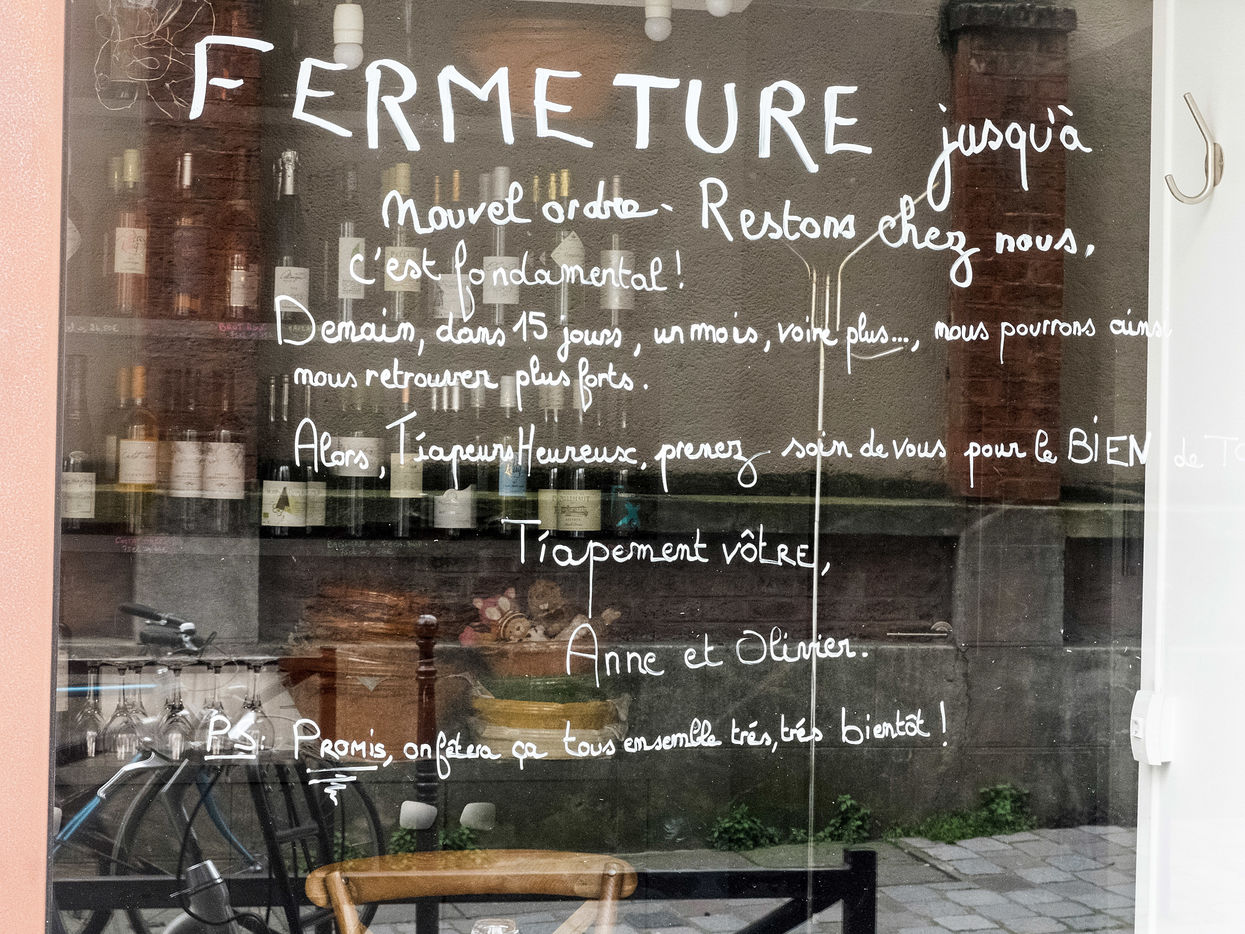 FERMETURE jusqu'à
nouvel ordre. Restons chez nous,
c'est fondamental !
Demain, dans 15 jours, un mois, voire plus..., nous pourrons ainsi
nous retrouver plus forts.
Alors, TiapeursHeureux, prenez soin de vous pour le BIEN de TO
Tiapement vôtre,
Anne et Olivier.
PS: Promis, on fêtera ça tous ensemble trés, trés bientôt !